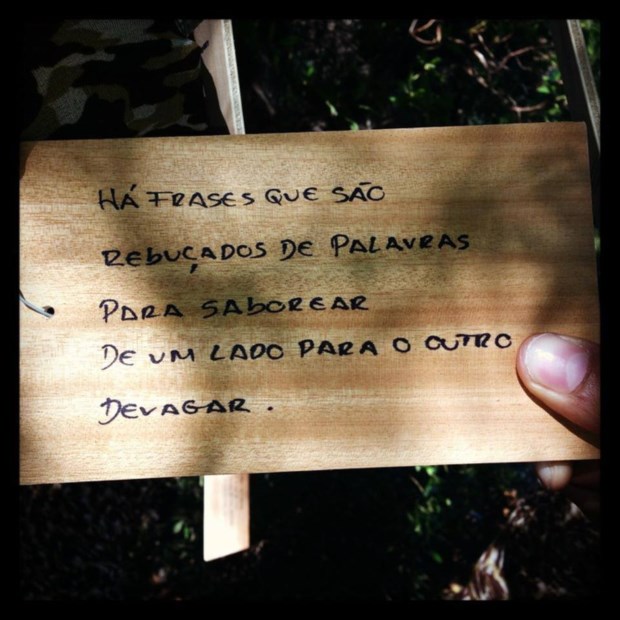 HÁ FRASES QUE SÃO
REBUÇADOS DE PALAVRAS
PARA SABOREAR
DE UM LADO PARA O OUTRO
DEVAGAR.